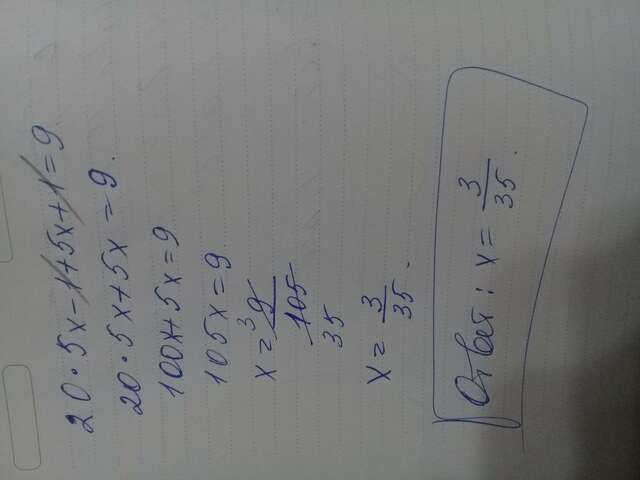 20·5x-1+5x+1=9
20·5x+5x=9.
100x+5x=9
105x=9
x=³9/105
35
x=3/35.
Ответ: x=3/35.